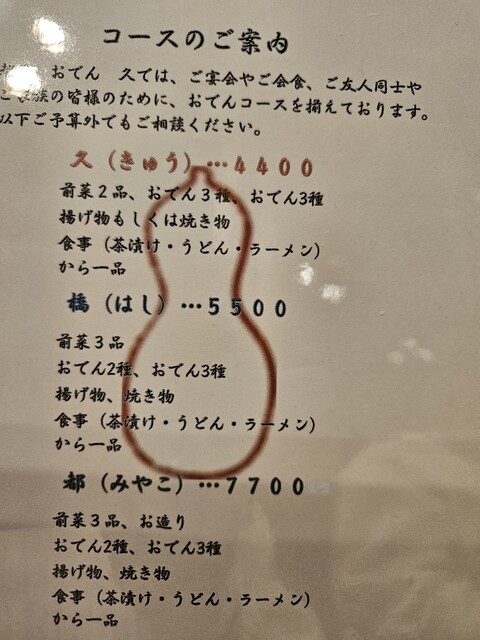 コースのご案内
おでん 久では、ご宴会やご会食、ご友人同士や
ご家族の皆様のために、おでんコースを揃えております。
以下ご予算外でもご相談ください。
久（きゅう）…4400
前菜２品、おでん３種、おでん3種
揚げ物もしくは焼き物
食事（茶漬け・うどん・ラーメン）
から一品
橋（はし）…5500
前菜３品
おでん2種、おでん3種
揚げ物、焼き物
食事（茶漬け・うどん・ラーメン）
から一品
都（みやこ）…7700
前菜３品、お造り
おでん2種、おでん3種
揚げ物、焼き物
食事（茶漬け・うどん・ラーメン）
から一品